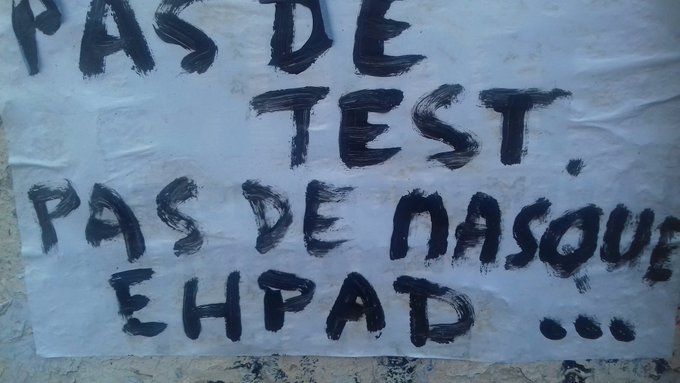 PAS DE
TEST.
PAS DE MASQUE
EHPAD ...